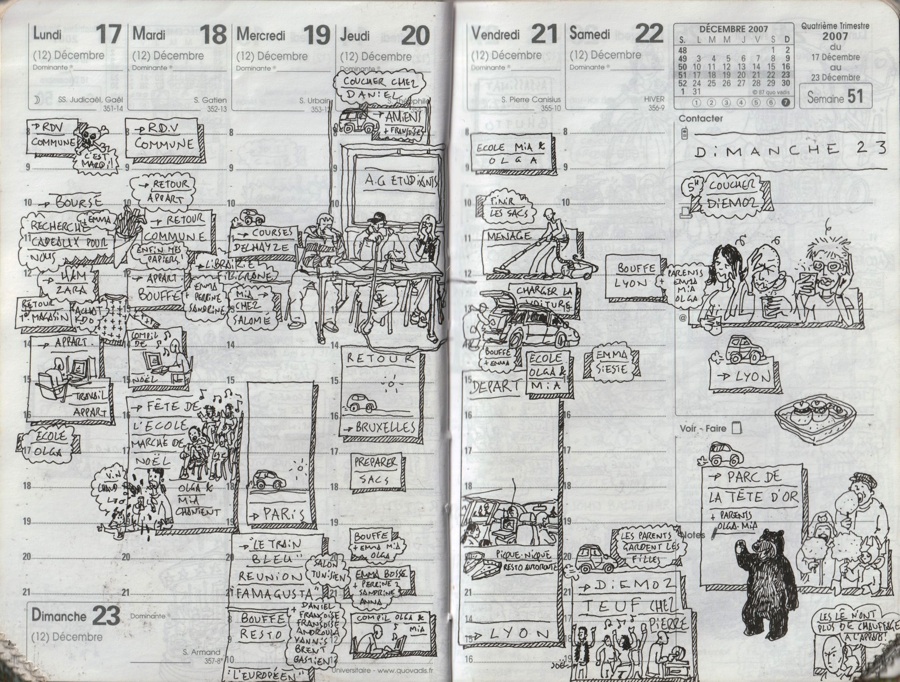 Lundi 17
(12) Décembre
Dominante
SS. Judicaël, Gaël
351-14
→ RDV
COMMUNE
C'EST
→ BOURSE
RECHERCHE
+ EMMA
CADEAUX POUR
NOUS
→ H&M
ZARA
RETOUR
MAGASIN
→ APPART
TRAVAIL
APPART
ÉCOLE
OLGA
Dimanche 23
(12) Décembre
Dominante
S. Armand
357-8
Mardi 18
(12) Décembre
Dominante
S. Gatien
352-13
→ R.D.V
COMMUNE
→ RETOUR
APPART
→ RETOUR
COMMUNE
ENFIN MES
PAPIERS!
→ APPART
BOUFFE
COMPIL
DE
NOËL
→ FÊTE DE
L'ÉCOLE
MARCHÉ DE
NOËL
OLGA &
MiA
CHANTENT
Mercredi 19
(12) Décembre
Dominante
S. Urbain
→ COURSES
DELHAYZE
→ LIBRAIRIE
FILIGRANE
EMMA
PERRINE
SANDRINE
MiA →
CHEZ
SALOMÉ
→ PARIS
→ "LE TRAIN
BLEU"
REUNION
FAMAGUSTA
SALON
TUNISIEN
BOUFFE
RESTO
+ DANIEL
FRANÇOISE
FRANÇOISE
ANDROULA
YANNIS
BRENT
BASTIEN
"L'EUROPÉEN"
Jeudi 20
(12) Décembre
COUCHER CHEZ
DANIEL
→ AMIENS
+ FRANÇOISE
A.G ETUDIANTS
RETOUR
→ BRUXELLES
PREPARER
SACS
BOUFFE
+ EMMA MiA
OLGA
EMMA BOSSE
+ PERRINE
SANDRINE
ANNA
COMPIL OLGA &
MiA
Universitaire - www.quovadis.fr
Vendredi 21
(12) Décembre
Dominante
S. Pierre Canisius
355-10
ECOLE MiA &
OLGA
FINIR
LES SACS
MENAGE
CHARGER LA
VOITURE
BOUFFE
+ EMMA
ÉCOLE
OLGA &
MiA
DEPART
PIQUE-NIQUE
RESTO AUTOROUTE
→ LYON
Samedi 22
(12) Décembre
Dominante
HIVER
356-9
BOUFFE
LYON
+ PARENTS
EMMA
MiA
OLGA
EMMA
SIESTE
LES PARENTS
GARDENT LES
FILLES
→ DiEMOZ
TEUF CHEZ
PiERRE
DÉCEMBRE 2007
S. L M M J V S D
48 1 2
49 3 4 5 6 7 8 9
50 10 11 12 13 14 15 16
51 17 18 19 20 21 22 23
52 24 25 26 27 28 29 30
1 31
© 87 quo vadis
1 2 3 4 5 6 7
Quatrième Trimestre
2007
du
17 Décembre
au
23 Décembre
Semaine 51
Contacter
DiMANCHE 23
5H COUCHER
DiEMOZ
@
→ LYON
Voir - Faire
→ PARC DE
LA TÊTE D'OR
+ PARENTS
OLGA-MiA
Notes
PLUS DE CHAUFFAGE
A L'APPART!